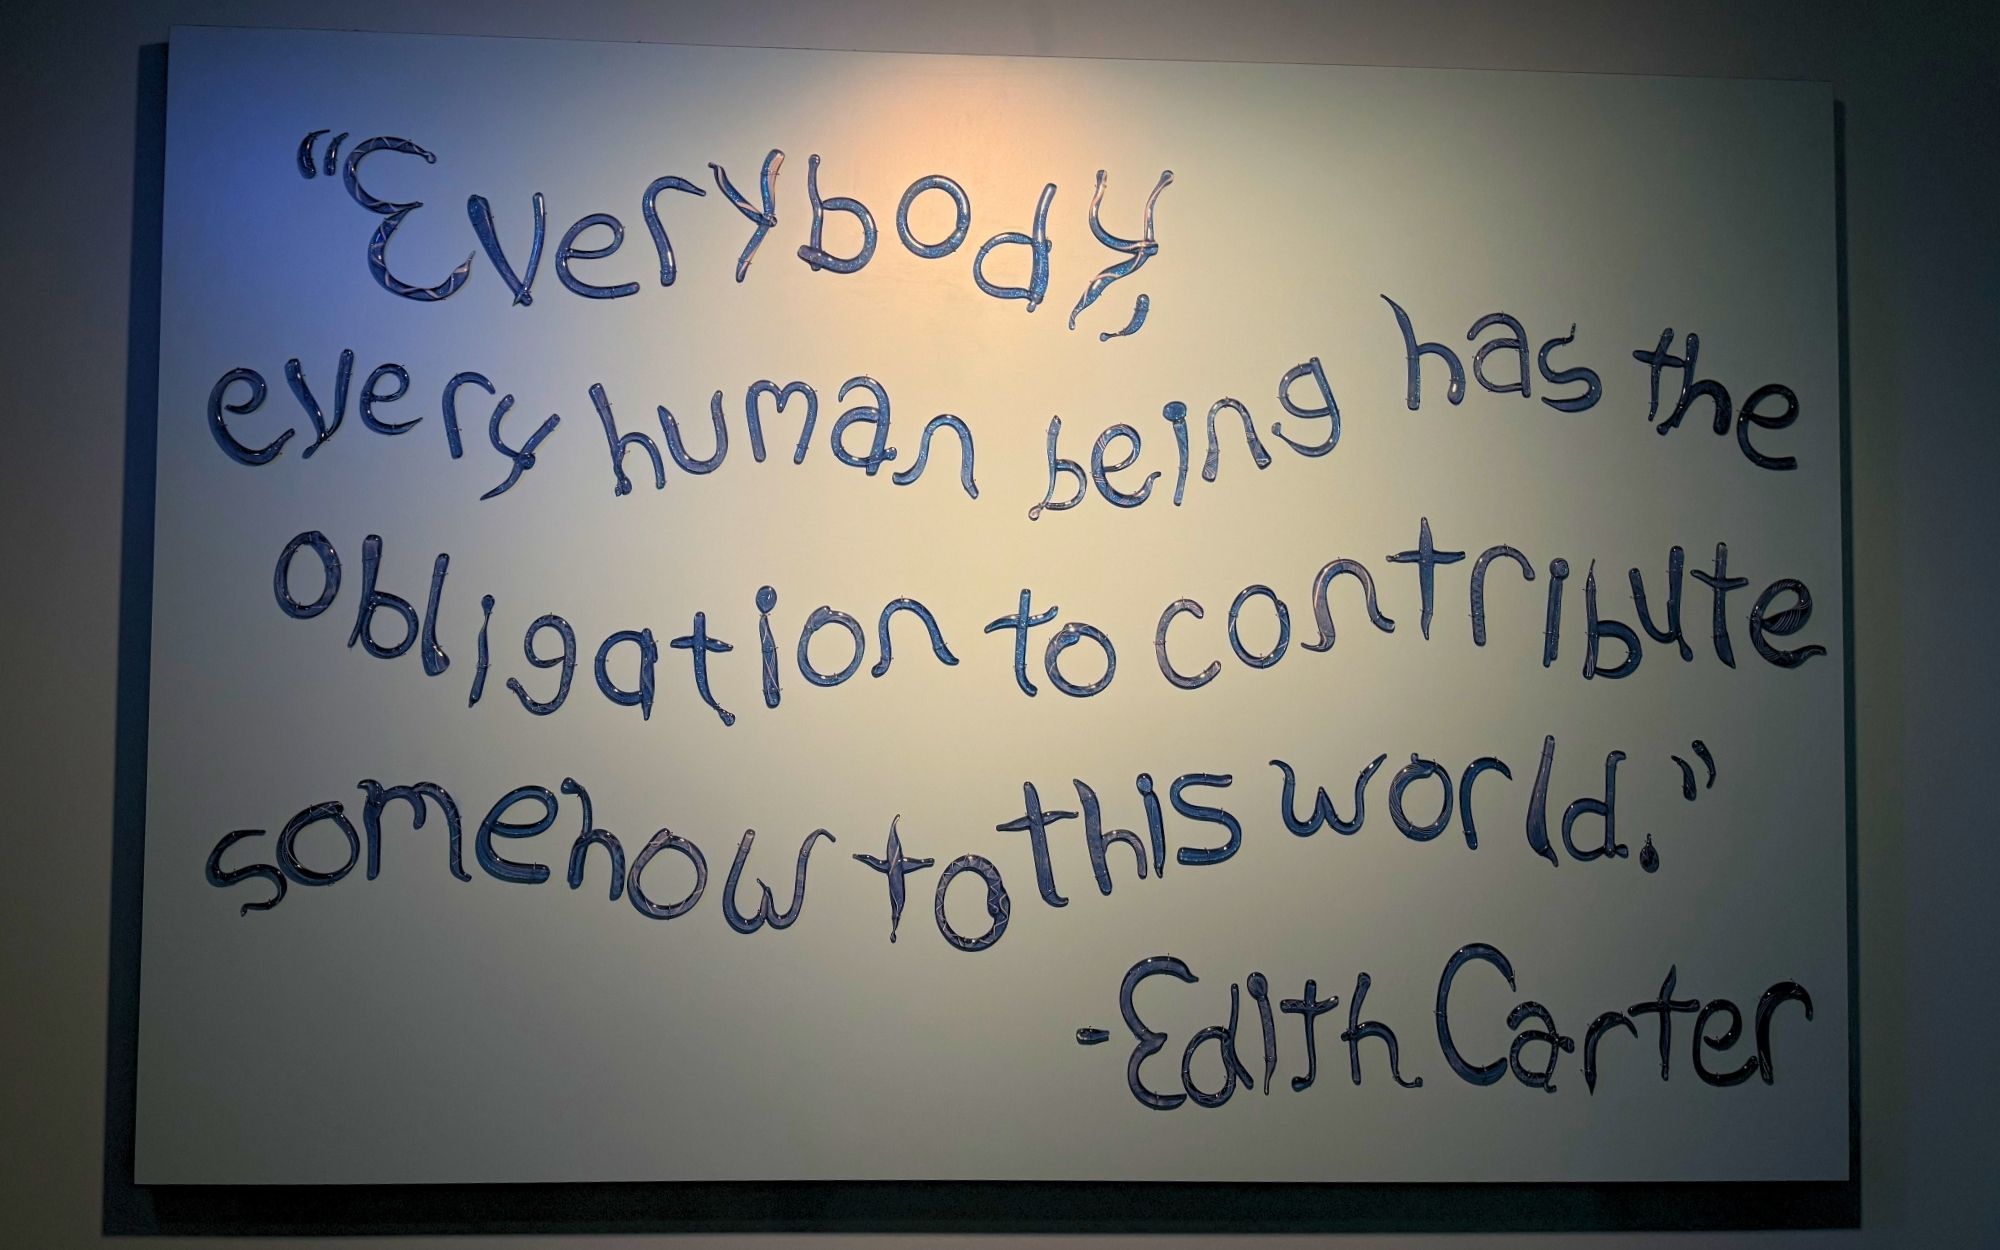 “Everybody,
every human being has the
obligation to contribute
somehow to this world.”
-Edith Carter